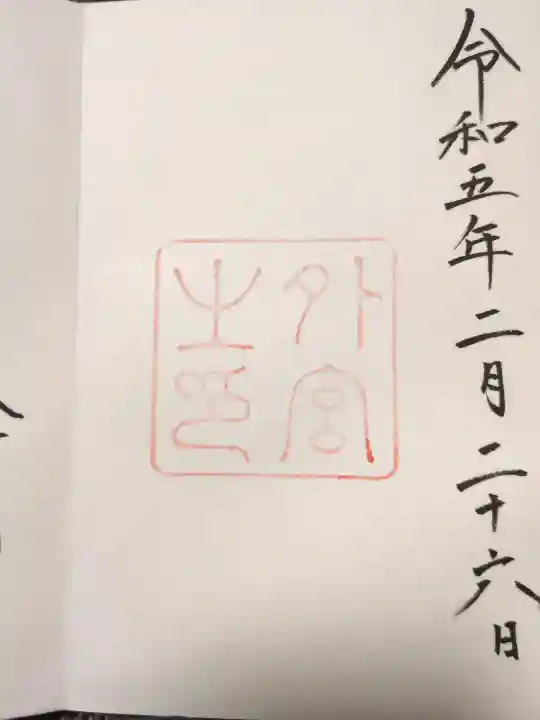 令和五年二月二十六日
外宮
之印